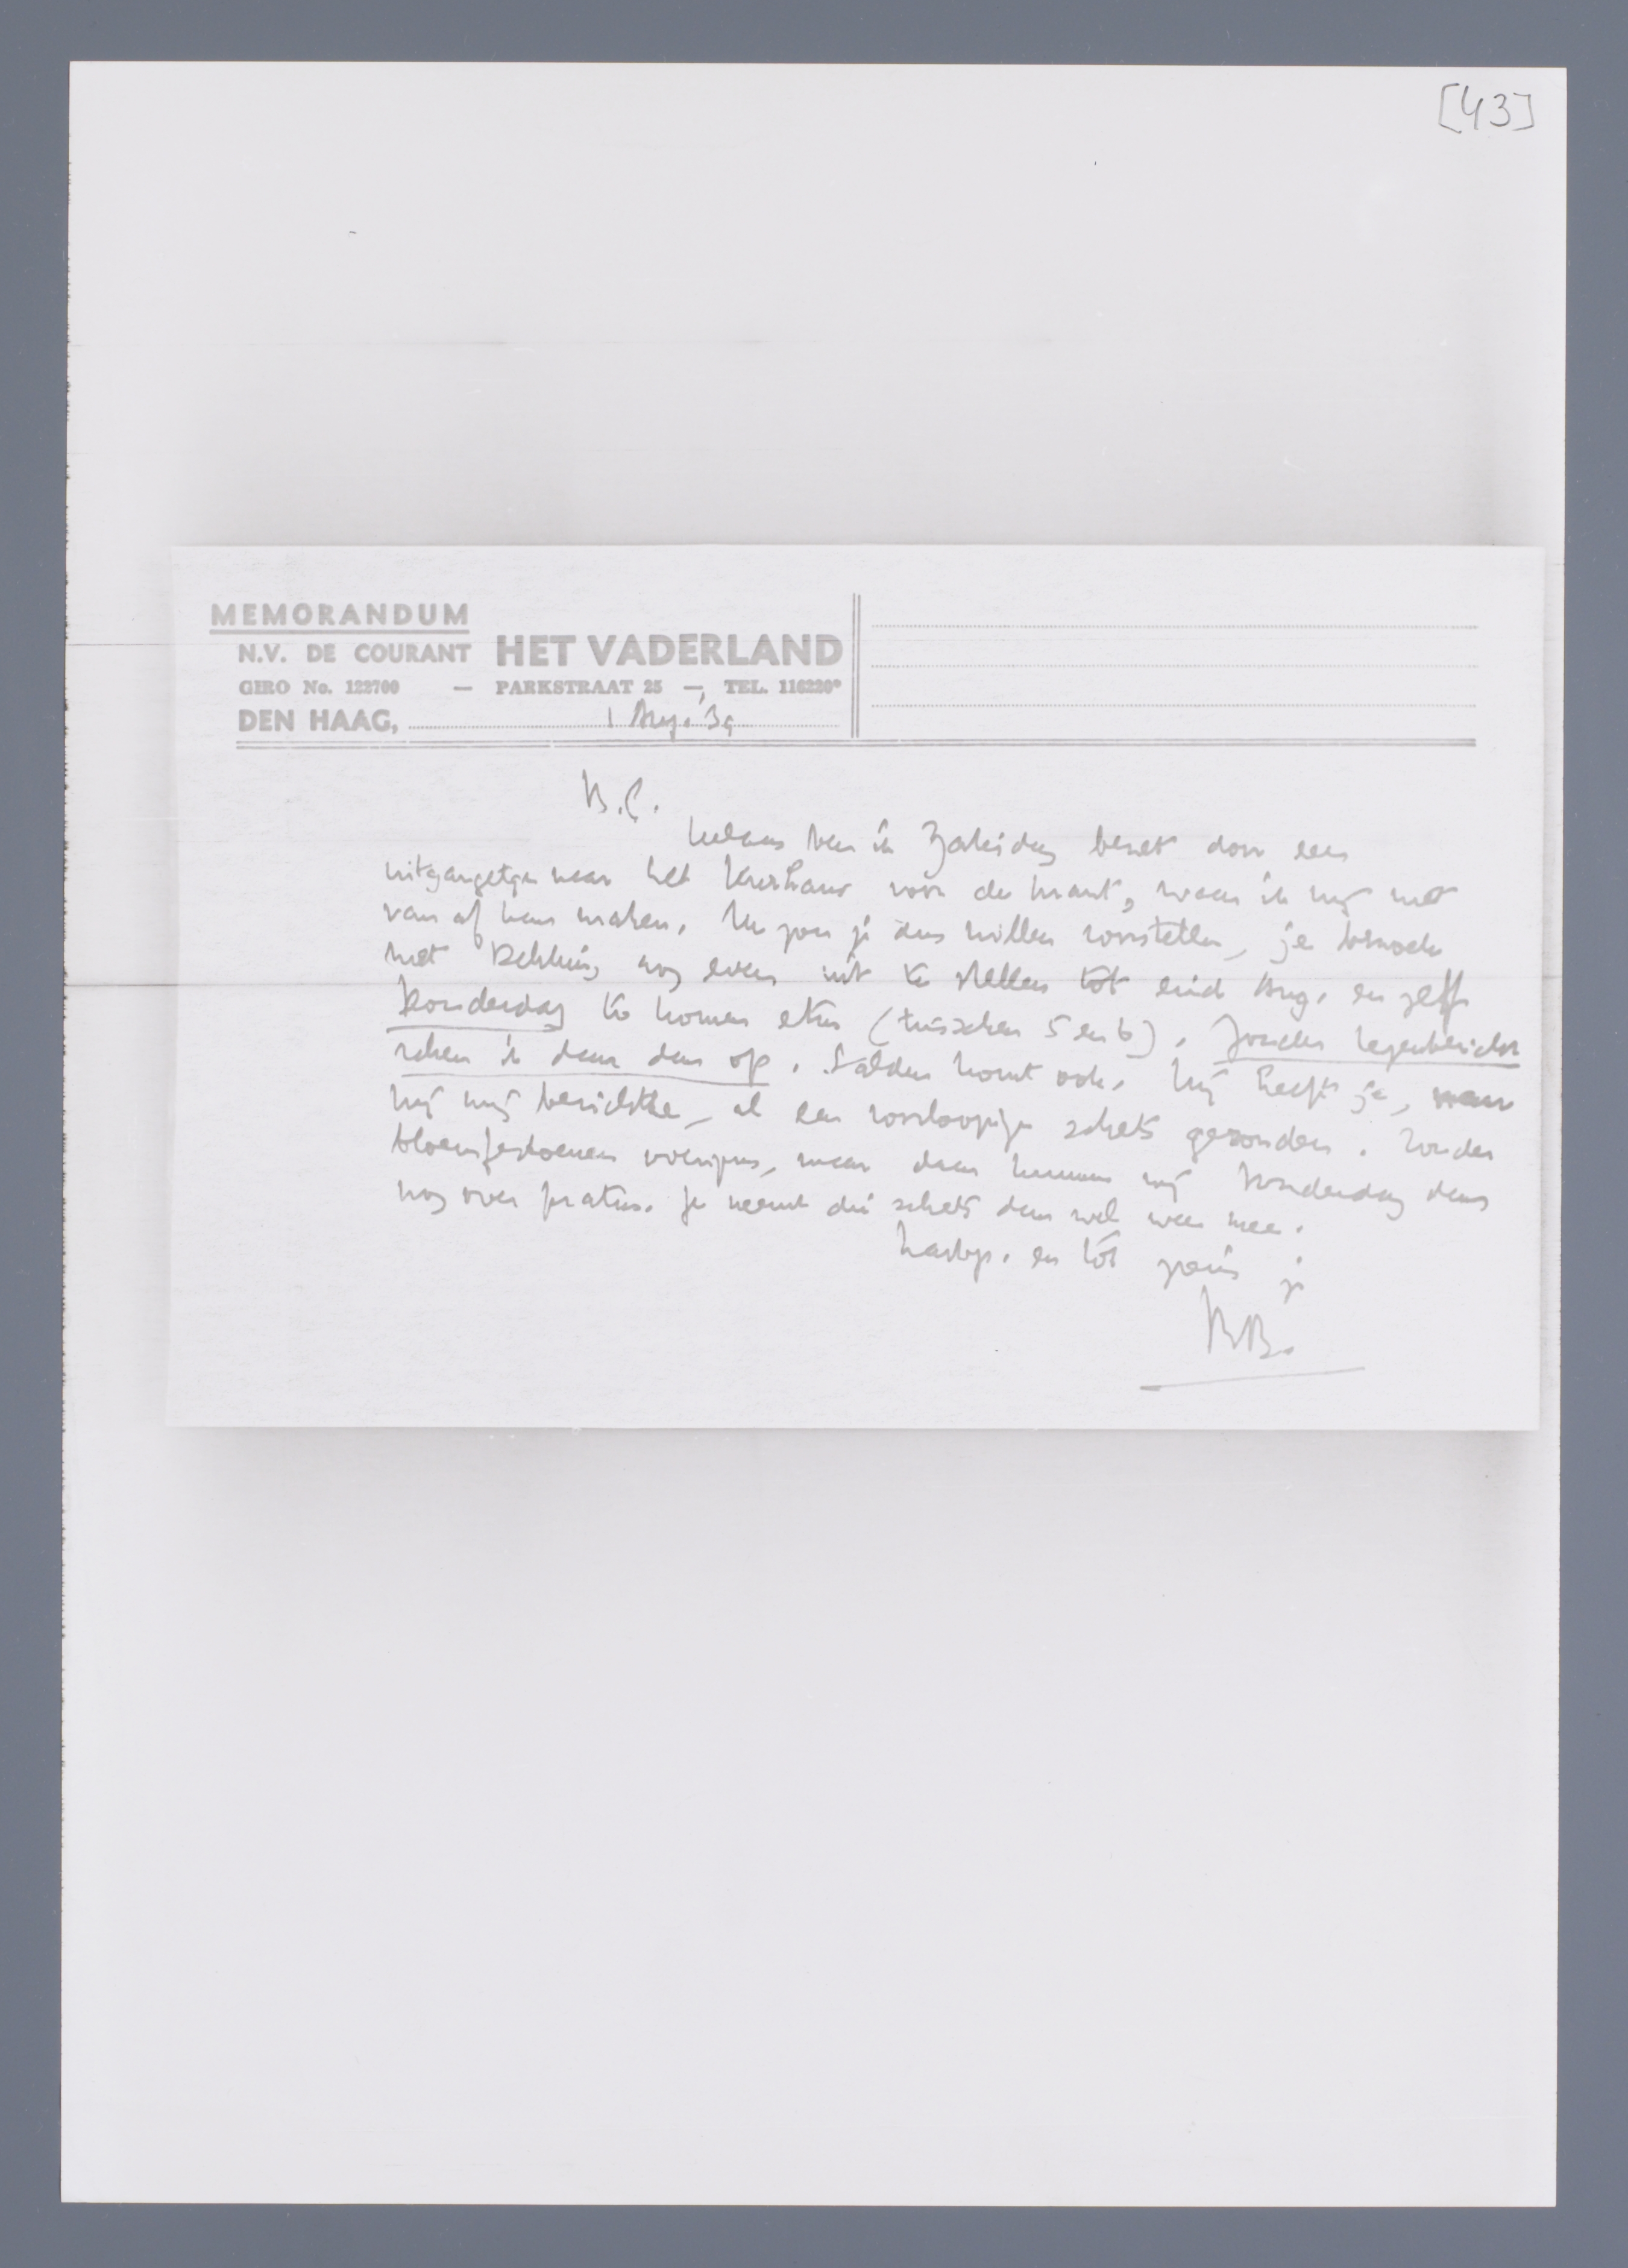 [43]
MEMORANDUM
N.V. DE COURANT HET VADERLAND
GIRO No. 122700 — PARKSTRAAT 25 — TEL. 116220*
DEN HAAG, 1 Aug. '39
B.C.
helaas ben ik Zaterdag bezet door een
uitgangetje naar het Kurhaus voor de krant, waar ik mij niet
van af kan maken. Ik zou je dus willen voorstellen, je bezoek
met Dekking nog even uit te stellen tot eind Aug. en zelf
Donderdag te komen eten (tusschen 5 en 6). Zonder tegenbericht
reken ik daar dan op. Salden komt ook. Hij heeft je, naar
hij mij berichtte, al een voorloopige schets gezonden. Zonder
bloemfestoenen overigens, maar daar kunnen wij Donderdag dan
nog over praten. Je neemt die schets dan wel weer mee.
Hartegr. en tot ziens je